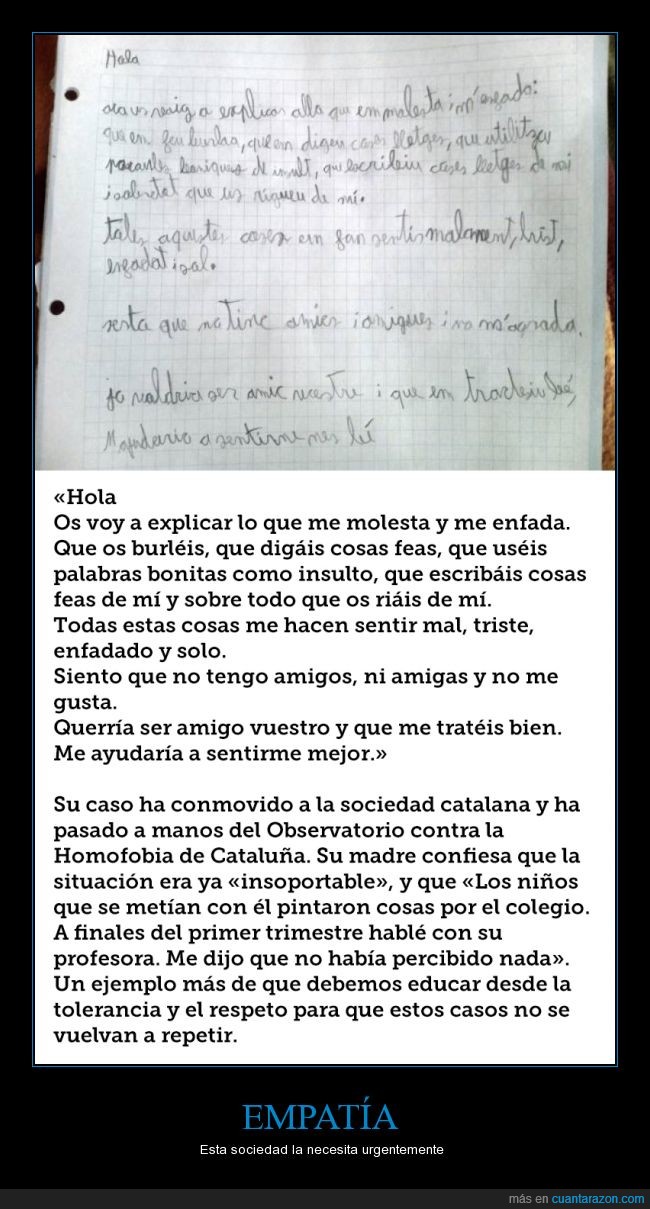 Hola
ara us vaig a explicar allo que em molesta i m'enfada:
que em feu burla, que em digeu coses lletges, que utilitzeu
paraules boniques de insult, que escribiu coses lletges de mi
i sobretot que us rigueu de mí.
totes aquestes coses em fan sentir malament, trist,
enfadat i sol.
sento que no tinc amics i amigues i no m'agrada.
jo valdria ser amic vostre i que em tracteu bé,
M'ajudaria a sentirme mes bé
«Hola
Os voy a explicar lo que me molesta y me enfada.
Que os burléis, que digáis cosas feas, que uséis
palabras bonitas como insulto, que escribáis cosas
feas de mí y sobre todo que os riáis de mí.
Todas estas cosas me hacen sentir mal, triste,
enfadado y solo.
Siento que no tengo amigos, ni amigas y no me
gusta.
Querría ser amigo vuestro y que me tratéis bien.
Me ayudaría a sentirme mejor.»
Su caso ha conmovido a la sociedad catalana y ha
pasado a manos del Observatorio contra la
Homofobia de Cataluña. Su madre confiesa que la
situación era ya «insoportable», y que «Los niños
que se metían con él pintaron cosas por el colegio.
A finales del primer trimestre hablé con su
profesora. Me dijo que no había percibido nada».
Un ejemplo más de que debemos educar desde la
tolerancia y el respeto para que estos casos no se
vuelvan a repetir.
EMPATÍA
Esta sociedad la necesita urgentemente
más en cuantarazon.com